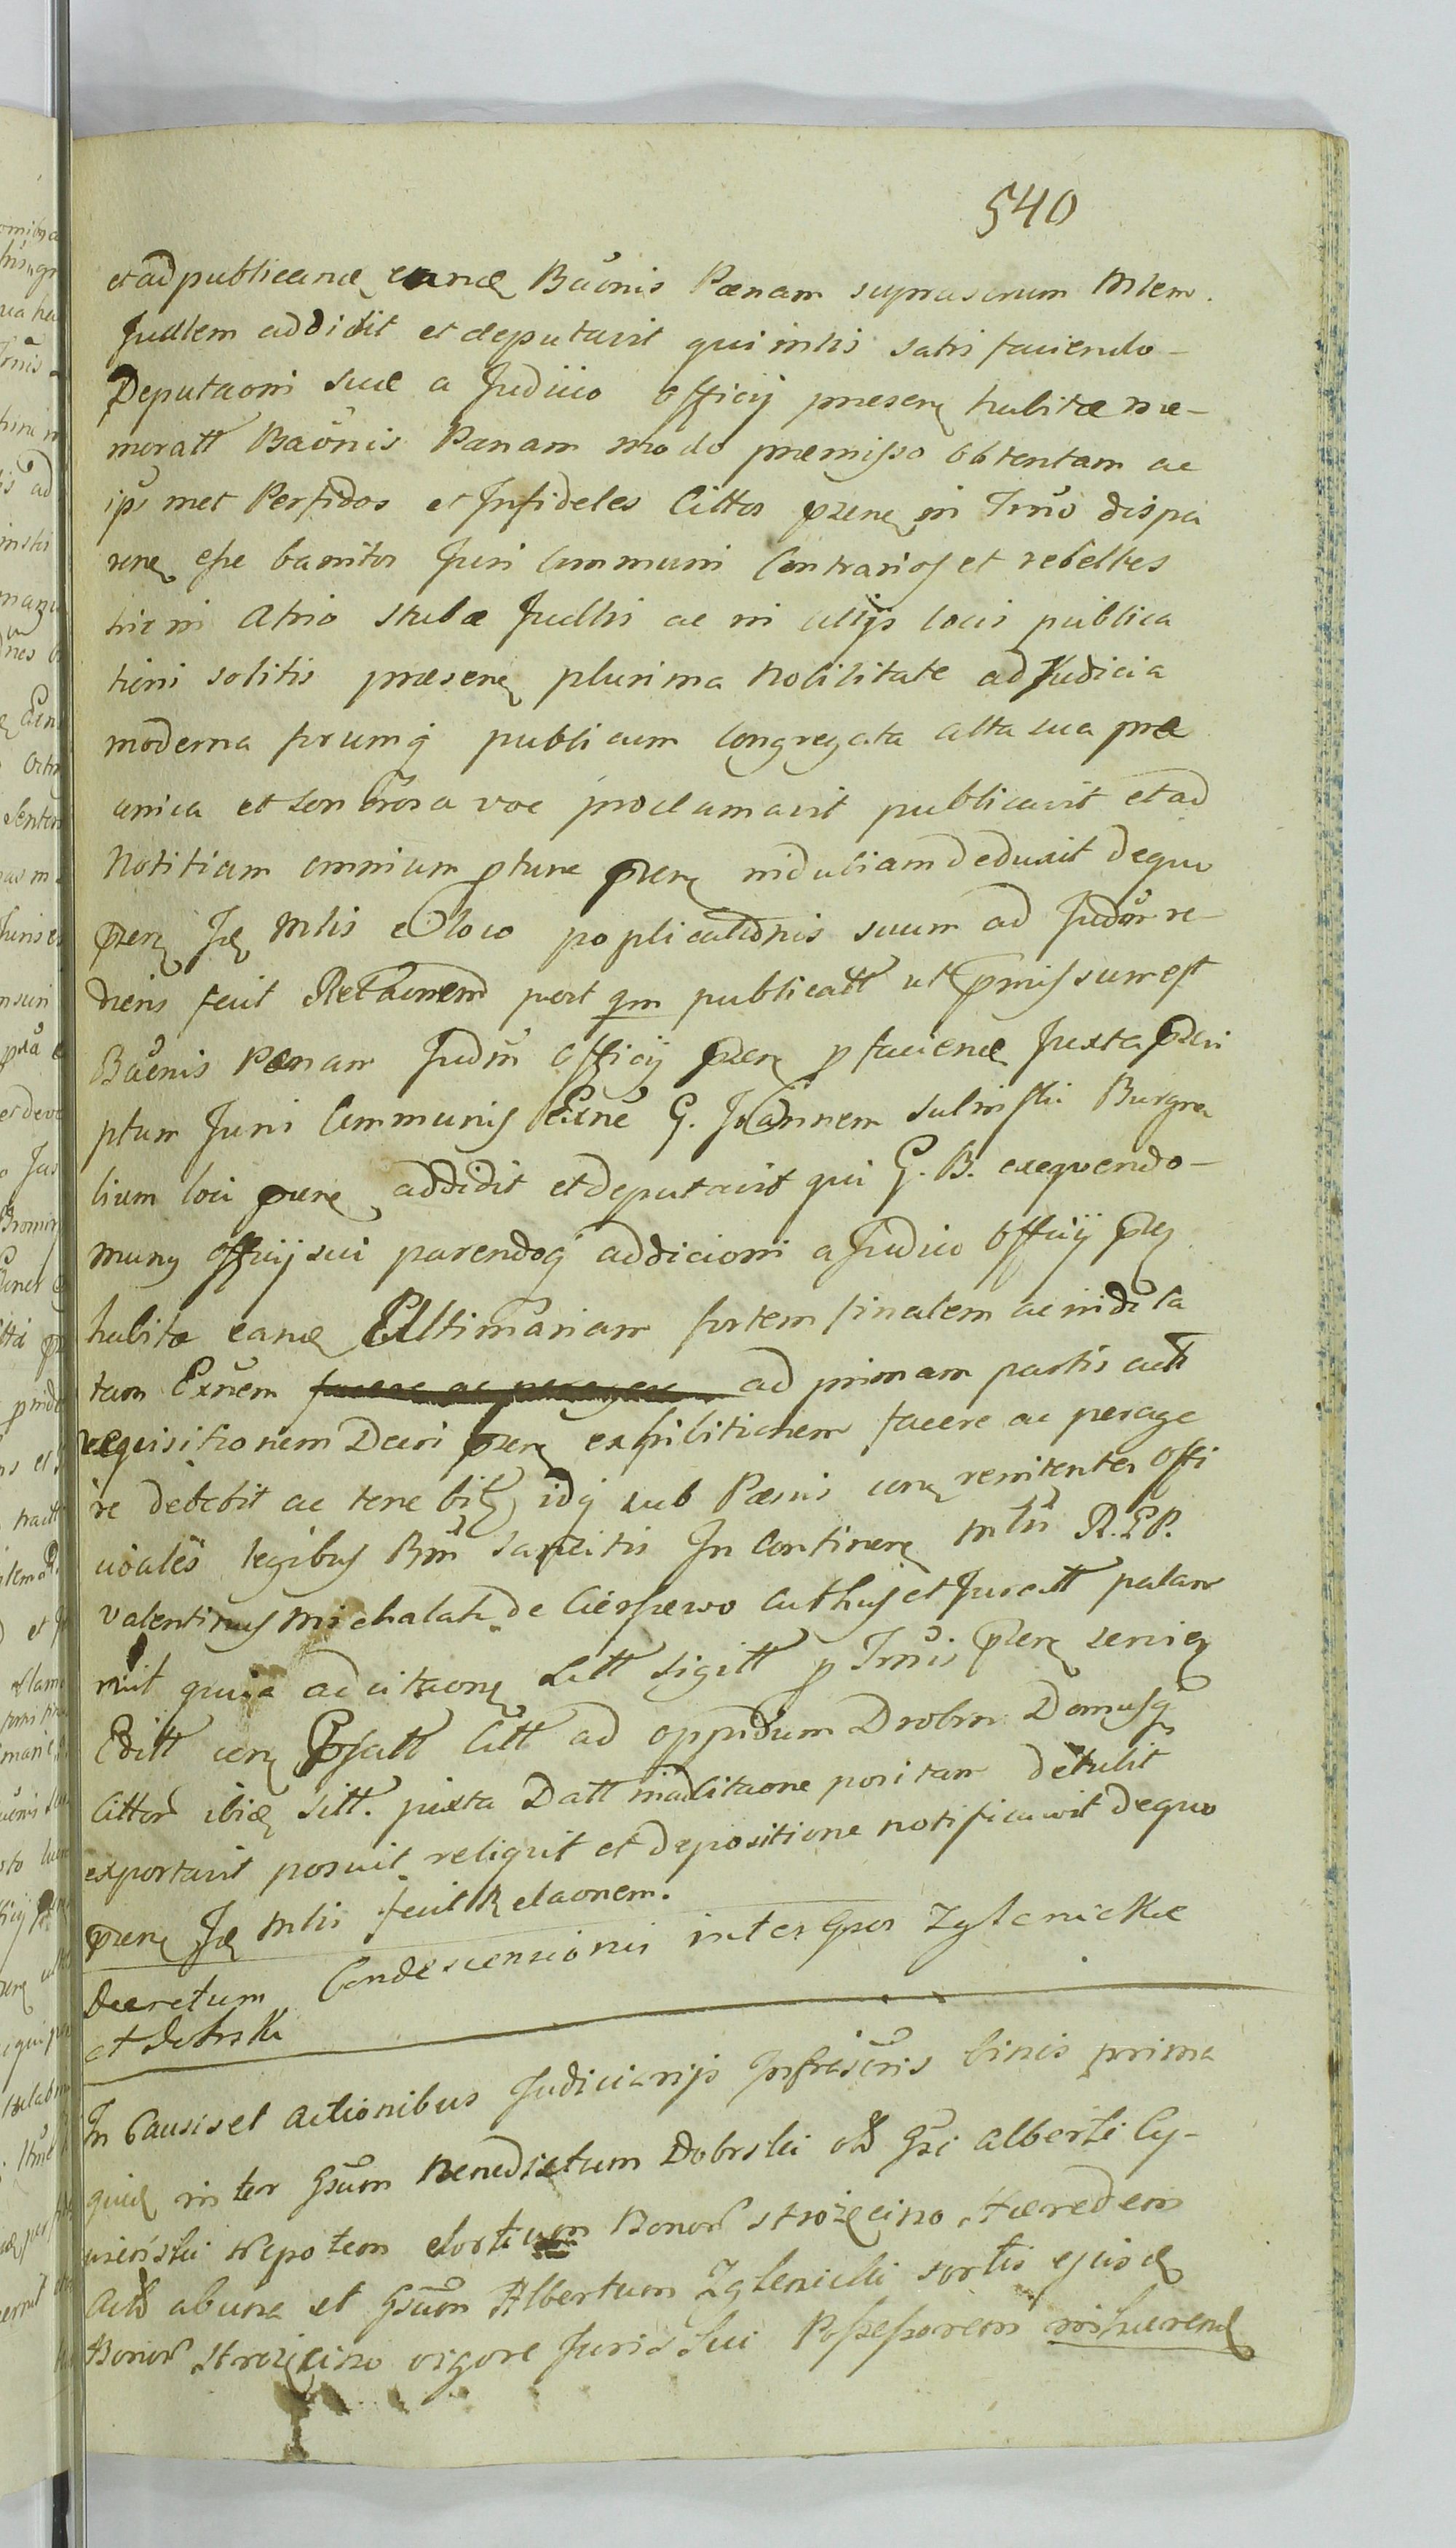 540
et ad publicand eand Baonis Pænam suprascrum Mlem
Judlem addidit et deputavit qui intis satis faciendo-
Deputaoni suæ a Judicio Officij præsen habitæ me-
moratt Baonis Pænam modo præmisso obtentam ac
ips met Perfidos et Infideles Cittos pren in Trno dispa
ren esse banitos Juri Communi Contrarios et rebelles
hic in Atrio Stubæ Judlis ac in alijs locis publica
tioni solitis præsen plurima Nobilitate ad Judicia
moderna forumq publicum Congregata alta sua præ
conica et sonorosa voce proclamavit publicavit et ad
Notitiam omnium pture pren nid uliam deduxit de quo
pren Id Mlis e loco poplicationis suum ad Judm re-
diens fecit Relaonem post qm publicatt ut pmissum est
Baonis Pænam Judm Officij pren p faciend Juxta præscri
ptum Juris Communis Exne G. Joannem Sulinski Burgra
bium loci pren addidit et deputavit qui G. B. exequendo-
muny officij sui parendoq addicioni a Judicio Officij pn
habitæ eand Ultimariam fortem finalem ac indila
tam Exnem ad primam partis actt
requisitionem Decri pren exhibitionem facere ac perage
re debebit ac tenebit idq sub Pænis con renitentes offi
ciales legibus Rni sancitis In Continen Mlis R. P. P.
Valentinus Michalak de Cierszewo Authus et Juratt palam
vit quia ad citaon Litt Sigitt p Trnis pren servien
Editt con Prfatt Citt ad oppidum Drobin Domusq
Cittor ibid Sitt. juxta Datt in Citaone positam detulit
exportavit posuit reliquit et depositione notificavit de quo
pren Id Mlis fecit Relaonem.
Decretum Condescensionis inter Gsos Zglenickie
et Dobrski
In Causis et Actionibus Judiciarijs Infrascris binis prima
quid inter Gsum Benedictum Dobrski olim Gsi Alberti Cy-
Nepotem Bonor Strozęcino Hæredem
Act ab una et Gsum Albertum Zglenicki sortis ejusd
Bonor Strozęcino vigore Juris sui Possessorem inhæren